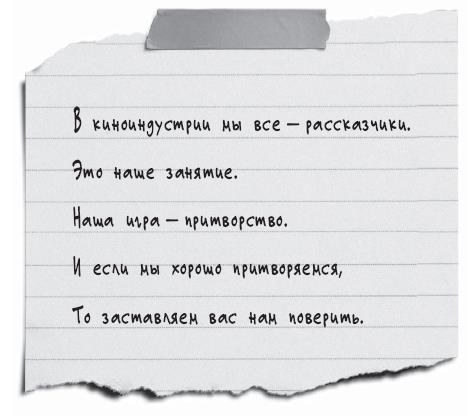 В киноиндустрии мы все – рассказчики.
Это наше занятие.
Наша игра – притворство.
И если мы хорошо притворяемся,
То заставляем вас нам поверить.